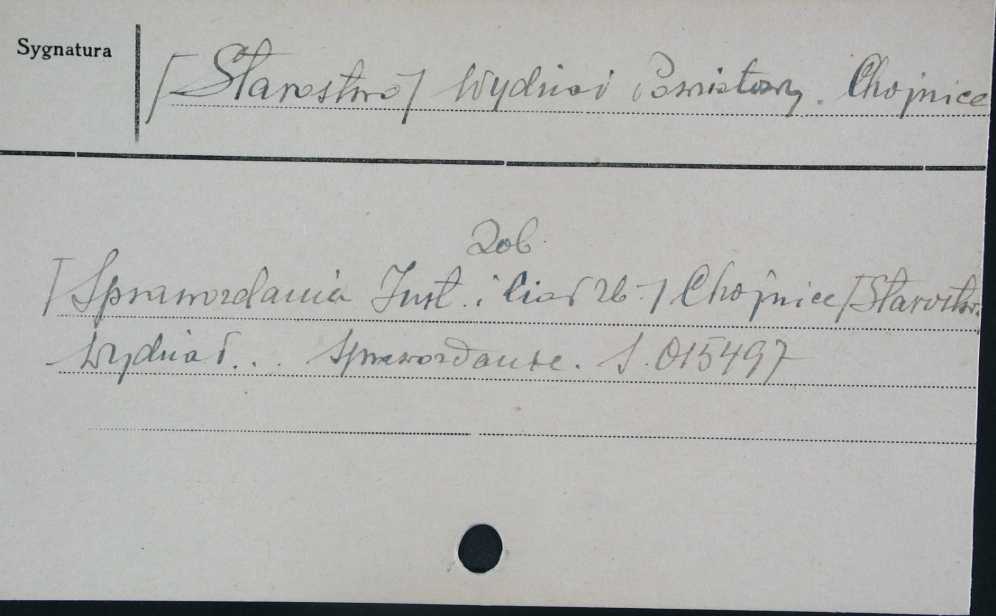 Sygnatura
[Starostwo] Wydział Powiatowy. Chojnice
Zob.
[Sprawozdania Inst. i Ciał Zb.] Chojnice [Starostw.
Wydział... Sprawozdanie. S. 015497